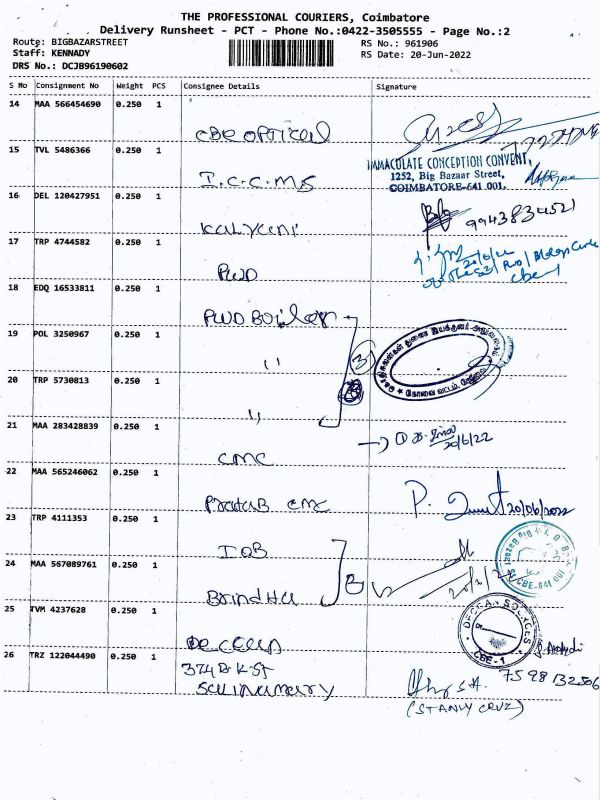 THE PROFESSIONAL COURIERS, Coimbatore
Delivery Runsheet - PCT - Phone No.:0422-3505555 - Page No.:2
Route: BIGBAZARSTREET
Staff: KENNADY
DRS No.: DCJB96190602
RS No.: 961906
RS Date: 20-Jun-2022
S No Consignment No Weight PCS Consignee Details Signature
14 MAA 566454690 0.250 1
CBE OPTICAL
15 TVL 5486366 0.250 1
IMMACULATE CONCEPTION CONVENT,
1252, Big Bazaar Street,
COIMBATORE-641 001.
I.C.C.MS
16 DEL 120427951 0.250 1
9943834521
Kalyani
17 TRP 4744582 0.250 1
20/6/22
PWD
18 EDQ 16533811 0.250 1
PWD Boiler
19 POL 3250967 0.250 1
"
3
20 TRP 5730813 0.250 1
கோவை வட்டம்,
"
21 MAA 283428839 0.250 1
20/6/22
CMC
22 MAA 565246062 0.250 1
CMC
P. 20/06/2022
23 TRP 4111353 0.250 1
IOB
24 MAA 567089761 0.250 1
CBE-641 001
Brindha
25 TVM 4237628 0.250 1
DECCAN SOURCES
CBE-1
Deccan
26 TRZ 122044490 0.250 1
374 B K St
7598132506
(STANLY CRUZ)